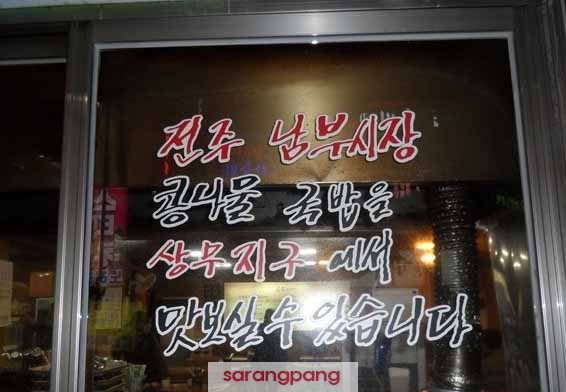 전주 남부시장
콩나물 국밥을
상무지구에서
맛보실수있습니다
sarangpang